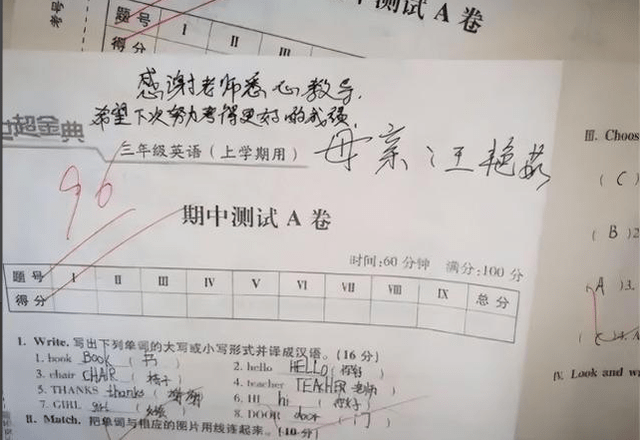 考号
题号 I II III
得分
中测试 A 卷
感谢老师悉心教导,
希望下次努力考得更好的成绩
母亲 汪艳茹
超金典
三年级英语(上学期用)
96
期中测试 A 卷
时间:60 分钟 满分:100 分
题号 I II III IV V VI VII VIII IX 总分
得分
I. Write. 写出下列单词的大写或小写形式并译成汉语。(16 分)
1. book BOOK ( 书 ) 2. hello HELLO ( 你好 )
3. chair CHAIR ( 椅子 ) 4. teacher TEACHER ( 老师 )
5. THANKS thanks ( 谢谢 ) 6. HI hi ( 你好 )
7. GIRL girl ( 女孩 ) 8. DOOR door ( 门 )
II. Match. 把单词与相应的图片用线连起来。(10 分)
III. Choos
( C )
( B )2
( A )3.
IV. Look and wr